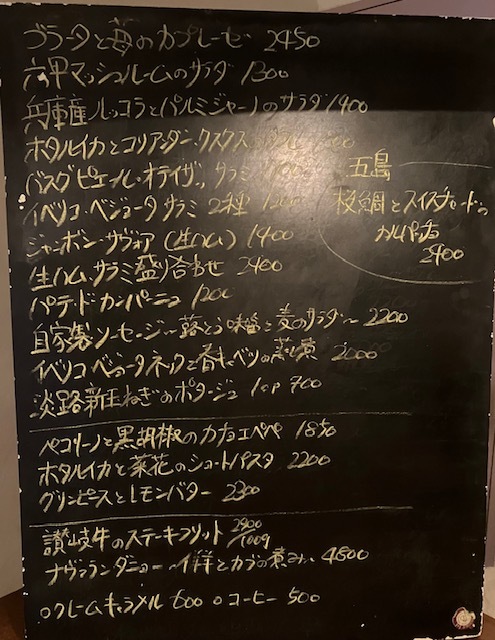 ブラータと苺のカプレーゼ 2450
六甲マッシュルームのサラダ 1300
兵庫産ルッコラとパルミジャーノのサラダ 1400
ホタルイカとコリアンダー クスクス
バスク ピエール・オテイザ サラミ
イベリコ・ベジョータ サラミ 2種 1200
ジャーボン・サヴォア (生ハム) 1400
生ハム サラミ盛り合わせ 2400
パテ・ド・カンパーニュ 1200
自家製ソーセージ〜蕗とう味噌と麦のサラダ〜 2200
イベリコ ベジョータ ネックと春キャベツの蒸し煮 2000
淡路新玉ねぎのポタージュ 1cp 700
五島
桜鯛とスイスチャードの
カルパッチョ
2400
ペコリーノと黒胡椒のカチョエペペ 1850
ホタルイカと菜花のショートパスタ 2200
グリンピースとレモンバター 2300
讃岐牛のステーキフリット 2900/100g
ナヴァランダニョー 仔羊とカブの煮込み 4800
○クレームキャラメル 600 ○コーヒー 500